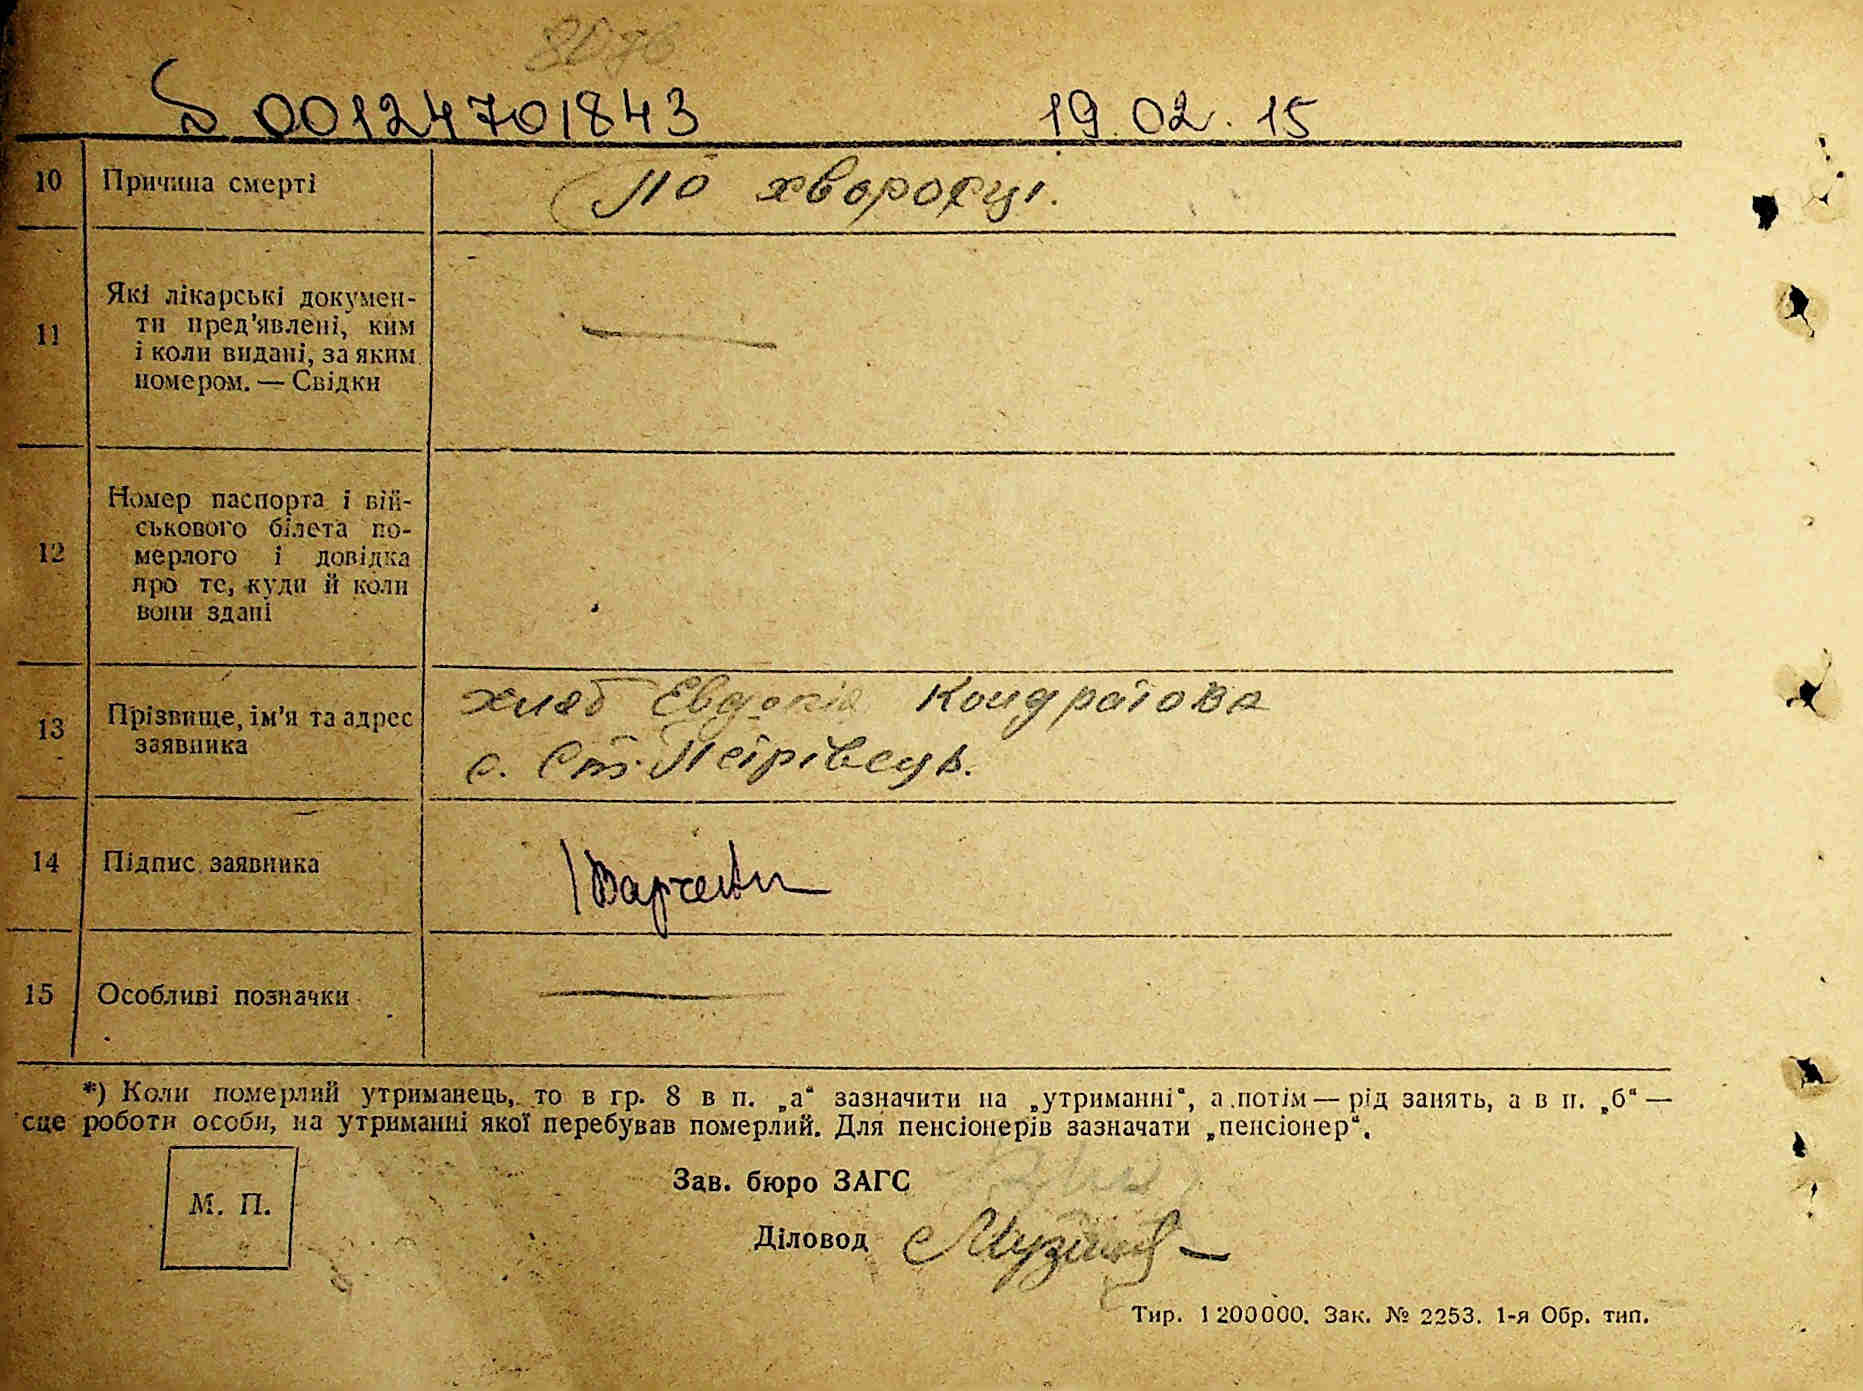 00124701843 19.02.15
10 Причина смерті По хворобці.
11 Які лікарські докумен-
ти пред'явлені, ким
і коли видані, за яким
номером. — Свідки
12 Номер паспорта і вій-
ськового білета по-
мерлого і довідка
про те, куди й коли
вони здані
13 Прізвище, ім'я та адрес
заявника
Хляб Евдокія Кондратова
с. Ст. Петрівець.
14 Підпис заявника
15 Особливі позначки
*) Коли померлий утриманець, то в гр. 8 в п. „а“ зазначити на „утриманні“, а потім — рід занять, а в п. „б“ —
сце роботи особи, на утриманні якої перебував померлий. Для пенсіонерів зазначати „пенсіонер“.
М. П.
Зав. бюро ЗАГС
Діловод
Тир. 1200000. Зак. № 2253. 1-я Обр. тип.